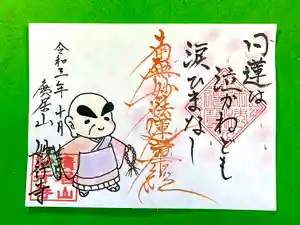 日蓮は
泣かねども
涙ひまなし
南無妙法蓮華経
令和三年十月
廣居山
妙行寺